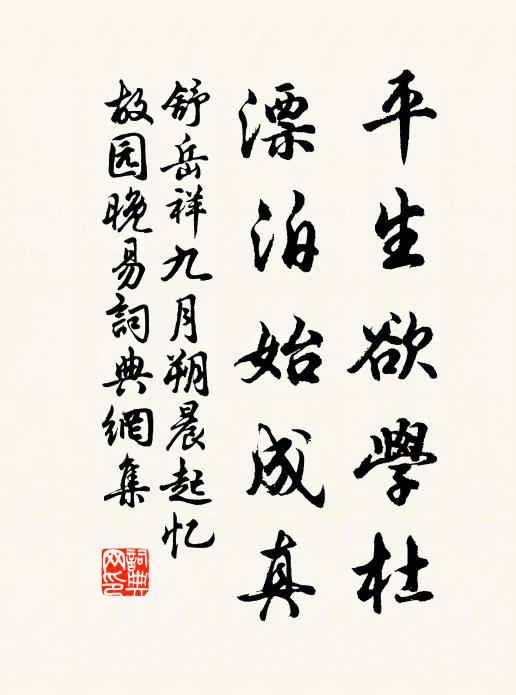 平生欲學杜
漂泊始成真
舒岳祥九月朔晨起忆
故园晚易詞典網集
詞典
网印